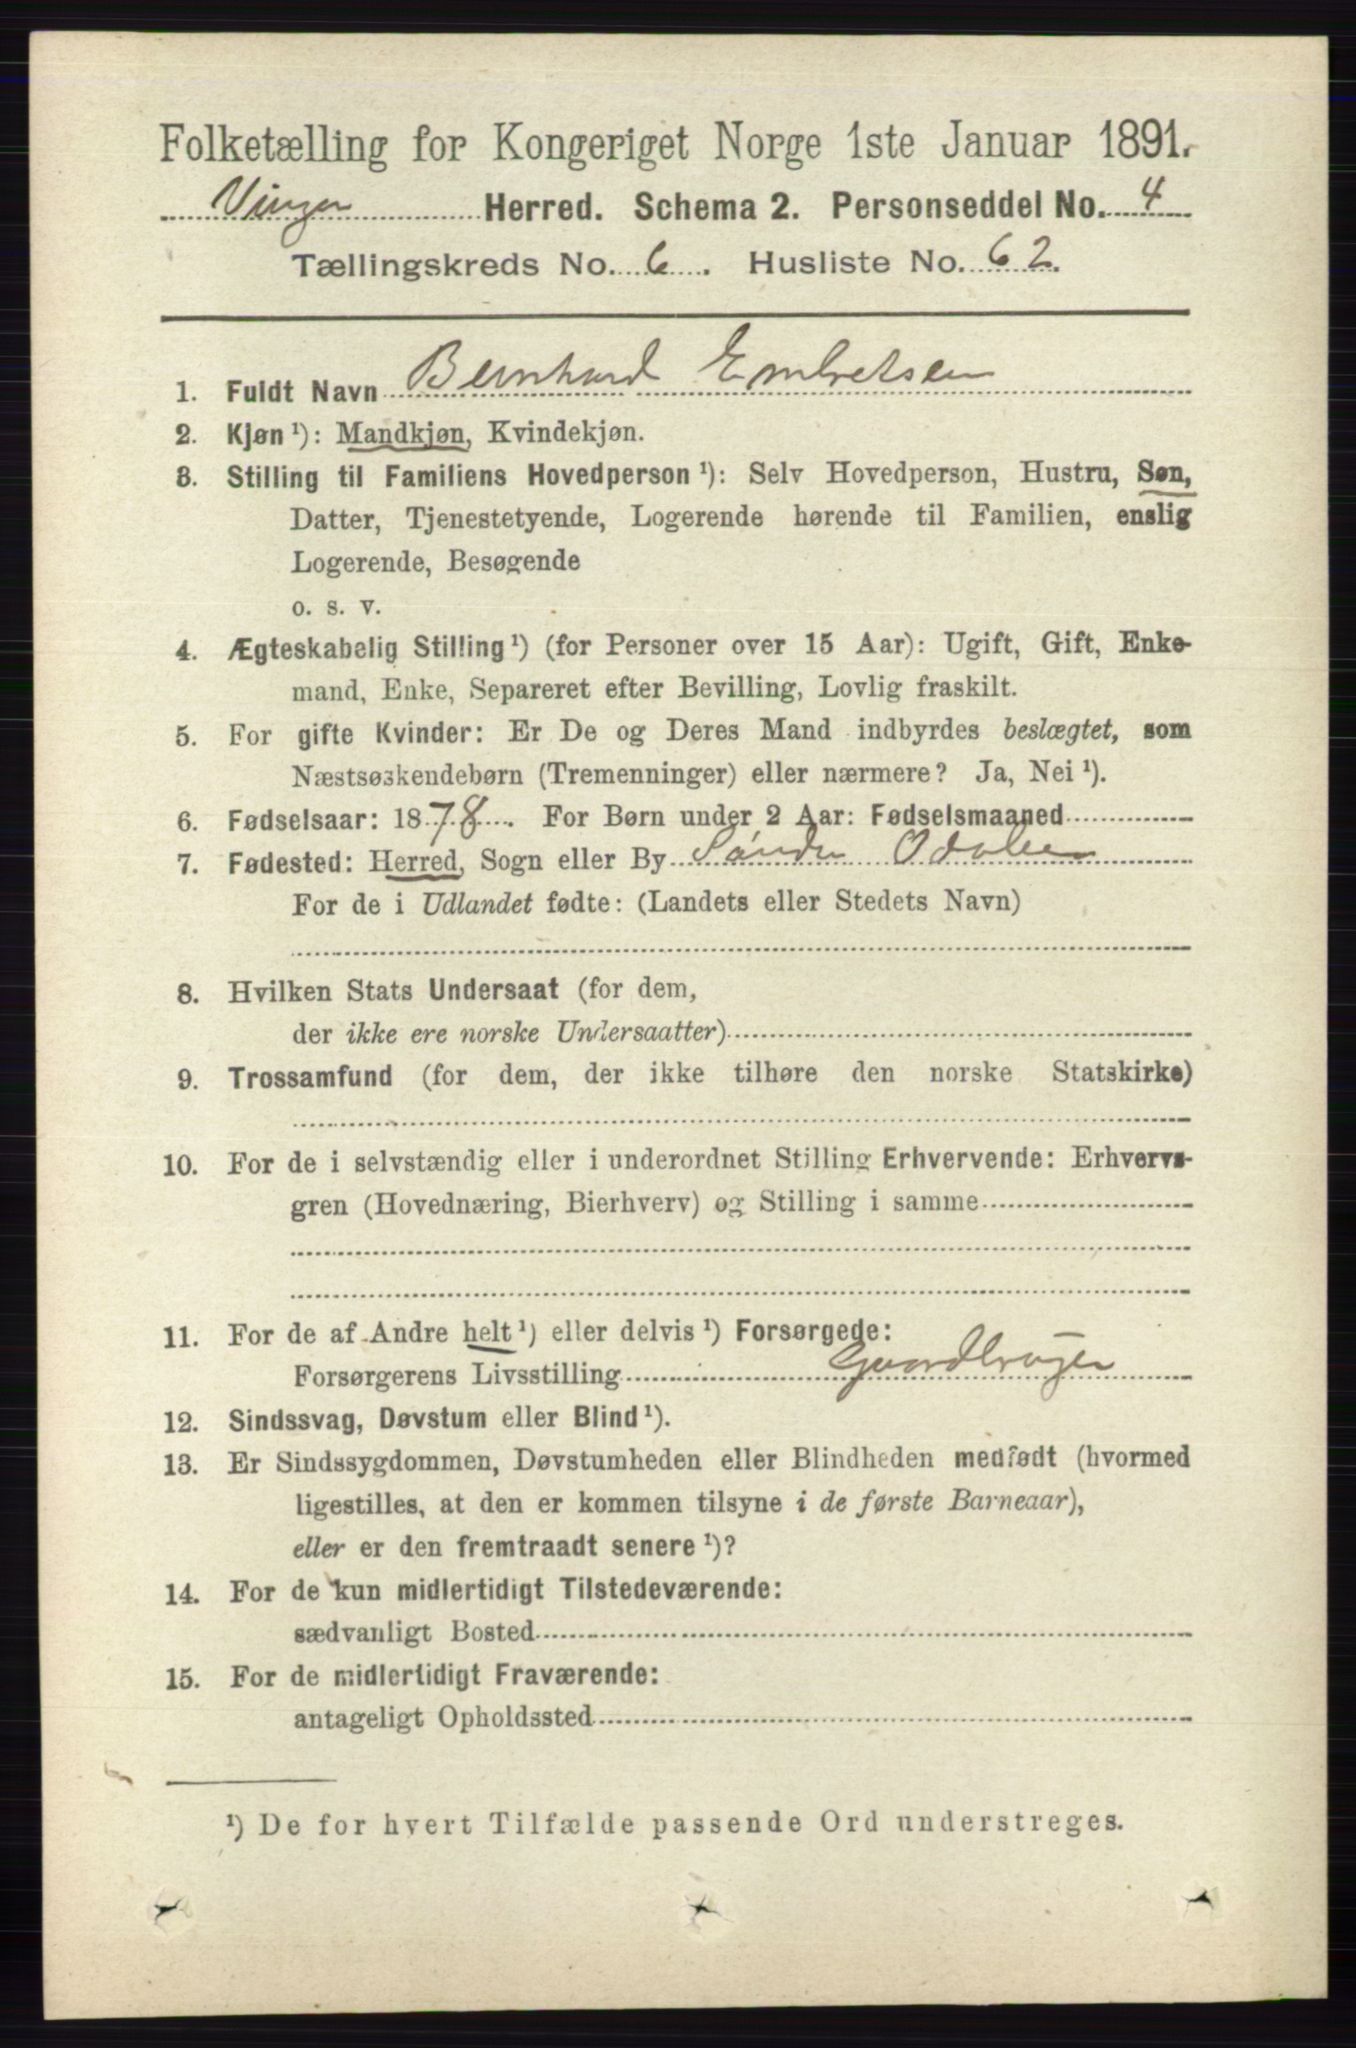 Folketælling for Kongeriget Norge 1ste Januar 1891.
Vinger Herred. Schema 2. Personseddel No. 4
Tællingskreds No. 6. Husliste No. 62.
1. Fuldt Navn Bernhard Embretsen
2. Kjøn ¹): Mandkjøn, Kvindekjøn.
3. Stilling til Familiens Hovedperson ¹): Selv Hovedperson, Hustru, Søn,
Datter, Tjenestetyende, Logerende hørende til Familien, enslig
Logerende, Besøgende
o. s. v.
4. Ægteskabelig Stilling ¹) (for Personer over 15 Aar): Ugift, Gift, Enke-
mand, Enke, Separeret efter Bevilling, Lovlig fraskilt.
5. For gifte Kvinder: Er De og Deres Mand indbyrdes beslægtet, som
Næstsøskendebørn (Tremenninger) eller nærmere? Ja, Nei ¹).
6. Fødselsaar: 1878. For Børn under 2 Aar: Fødselsmaaned
7. Fødested: Herred, Sogn eller By Søndre Odalen
For de i Udlandet fødte: (Landets eller Stedets Navn)
8. Hvilken Stats Undersaat (for dem,
der ikke ere norske Undersaatter)
9. Trossamfund (for dem, der ikke tilhøre den norske Statskirke)
10. For de i selvstændig eller i underordnet Stilling Erhvervende: Erhvervs-
gren (Hovednæring, Bierhverv) og Stilling i samme
11. For de af Andre helt ¹) eller delvis ¹) Forsørgede:
Forsørgerens Livsstilling Gaardbruger
12. Sindssvag, Døvstum eller Blind ¹).
13. Er Sindssygdommen, Døvstumheden eller Blindheden medfødt (hvormed
ligestilles, at den er kommen tilsyne i de første Barneaar),
eller er den fremtraadt senere ¹)?
14. For de kun midlertidigt Tilstedeværende:
sædvanligt Bosted
15. For de midlertidigt Fraværende:
antageligt Opholdssted
¹) De for hvert Tilfælde passende Ord understreges.